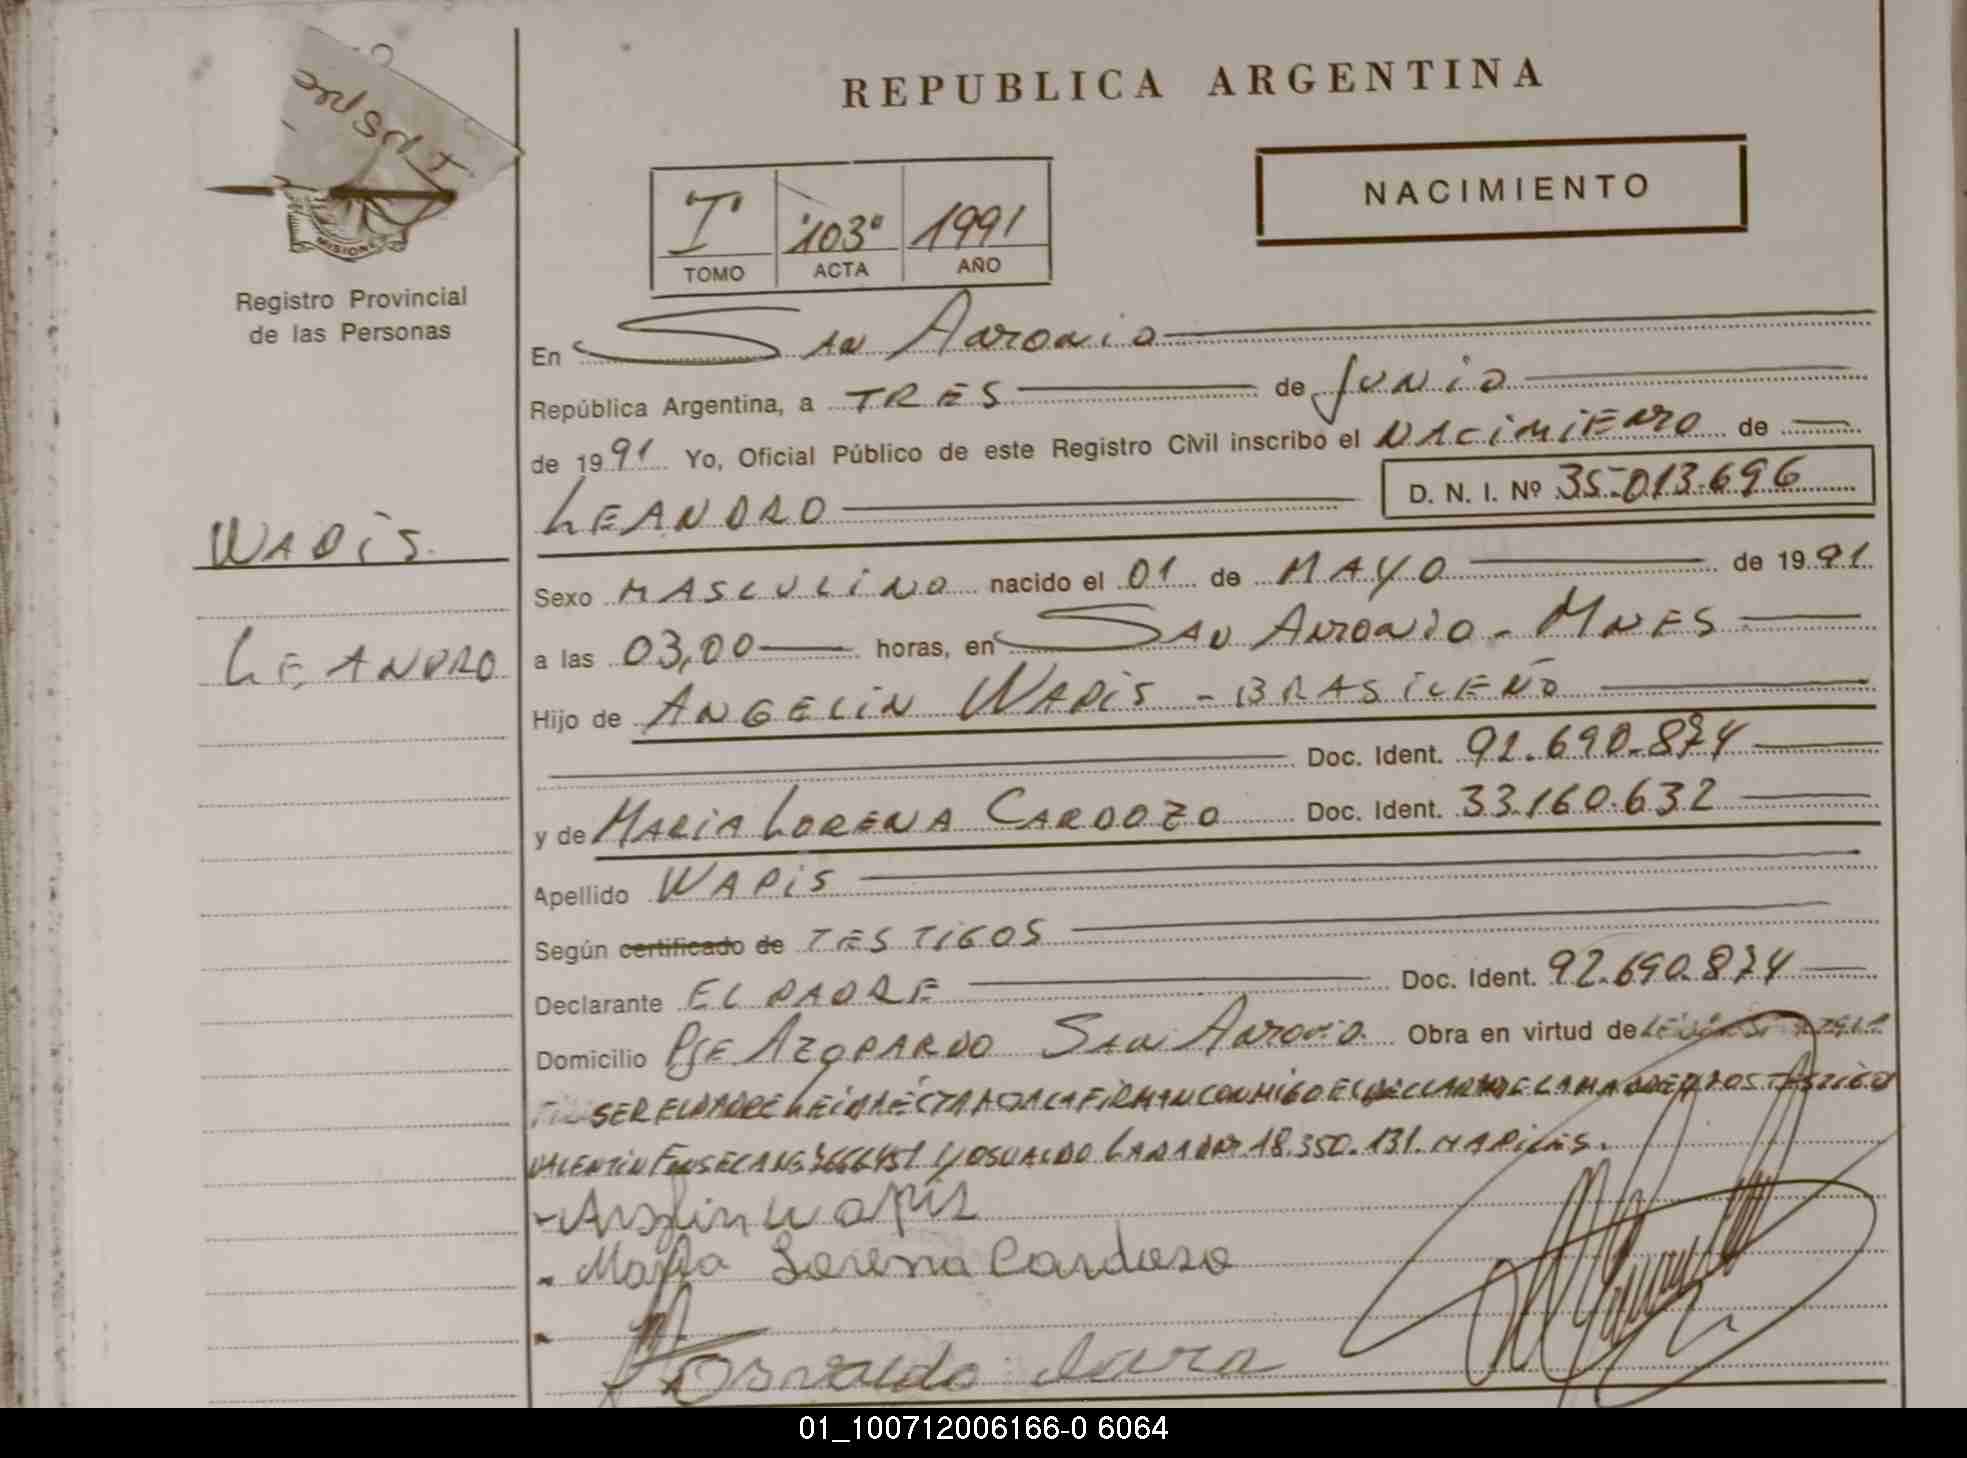 REPUBLICA ARGENTINA
NACIMIENTO
I
"103" 1991
TOMO ACTA AÑO
MISIONES
Registro Provincial
de las Personas
En San Antonio
República Argentina, a TRES de Junio
de 1991 Yo, Oficial Público de este Registro Civil inscribo el NACIMIENTO de
LEANDRO
D. N. I. Nº 35.013.696
WAPIS
LEANDRO
Sexo MASCULINO nacido el 01 de MAYO de 1991
a las 03,00 horas, en SAN ANTONIO - MNES
Hijo de ANGELIN WAPIS - BRASILEÑO
Doc. Ident. 92.690.874
y de MARIA LORENA CARDOZO Doc. Ident. 33.160.632
Apellido WAPIS
Según certificado de TESTIGOS
Declarante EL PADRE Doc. Ident. 92.690.874
Domicilio PJE AZOPARDO SAN ANTONIO. Obra en virtud de
SER EL PADRE LEIDA ÉCTA ACTA LA FIRMAN CONMIGO EL DECLARANTE LA MADRE Y LOS TESTIGOS
VALENTIN FONSECA Y OSVALDO LARA DNI 18.350.131.
- Angelin wapis
- Maria Lorena Cardozo
Osvaldo Lara
01_100712006166-0 6064